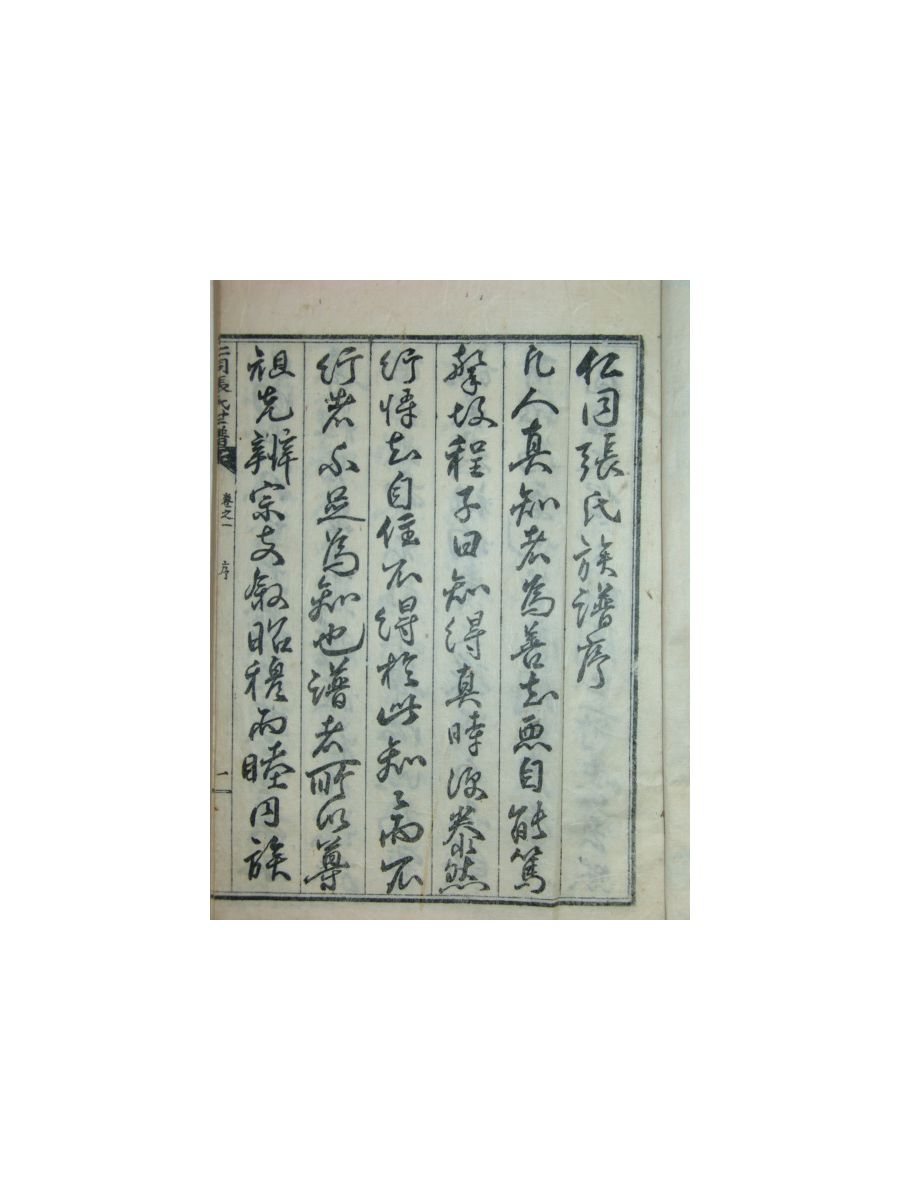 仁同張氏族譜序
凡人真知者為善去惡自能篤
擊故程子曰知得真時便泰然
行將去自住不得於此知之而不
行者不足為知也譜者所以尊
祖先辨宗支敘昭穆而睦同族
仁同張氏世譜
卷之一
序
一